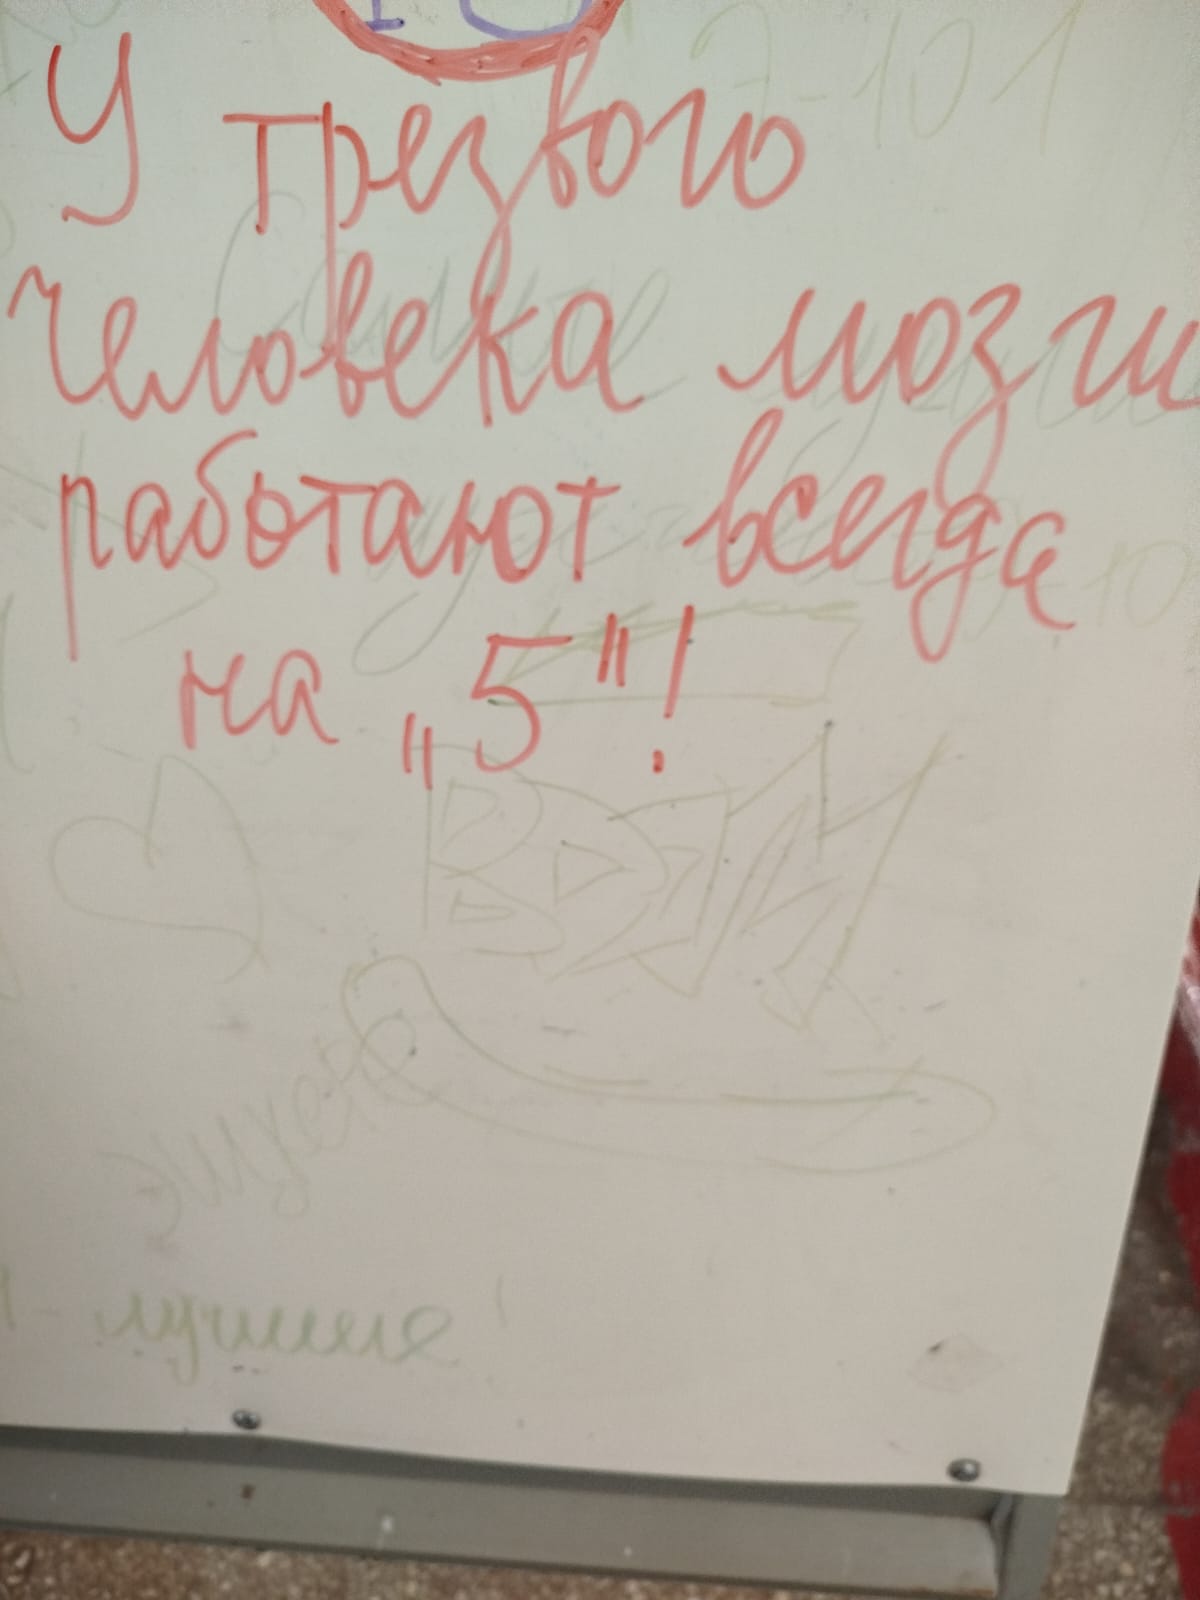 Э-101
У трезвого
человека мозги
работают всегда
на „5"!
лучшие!